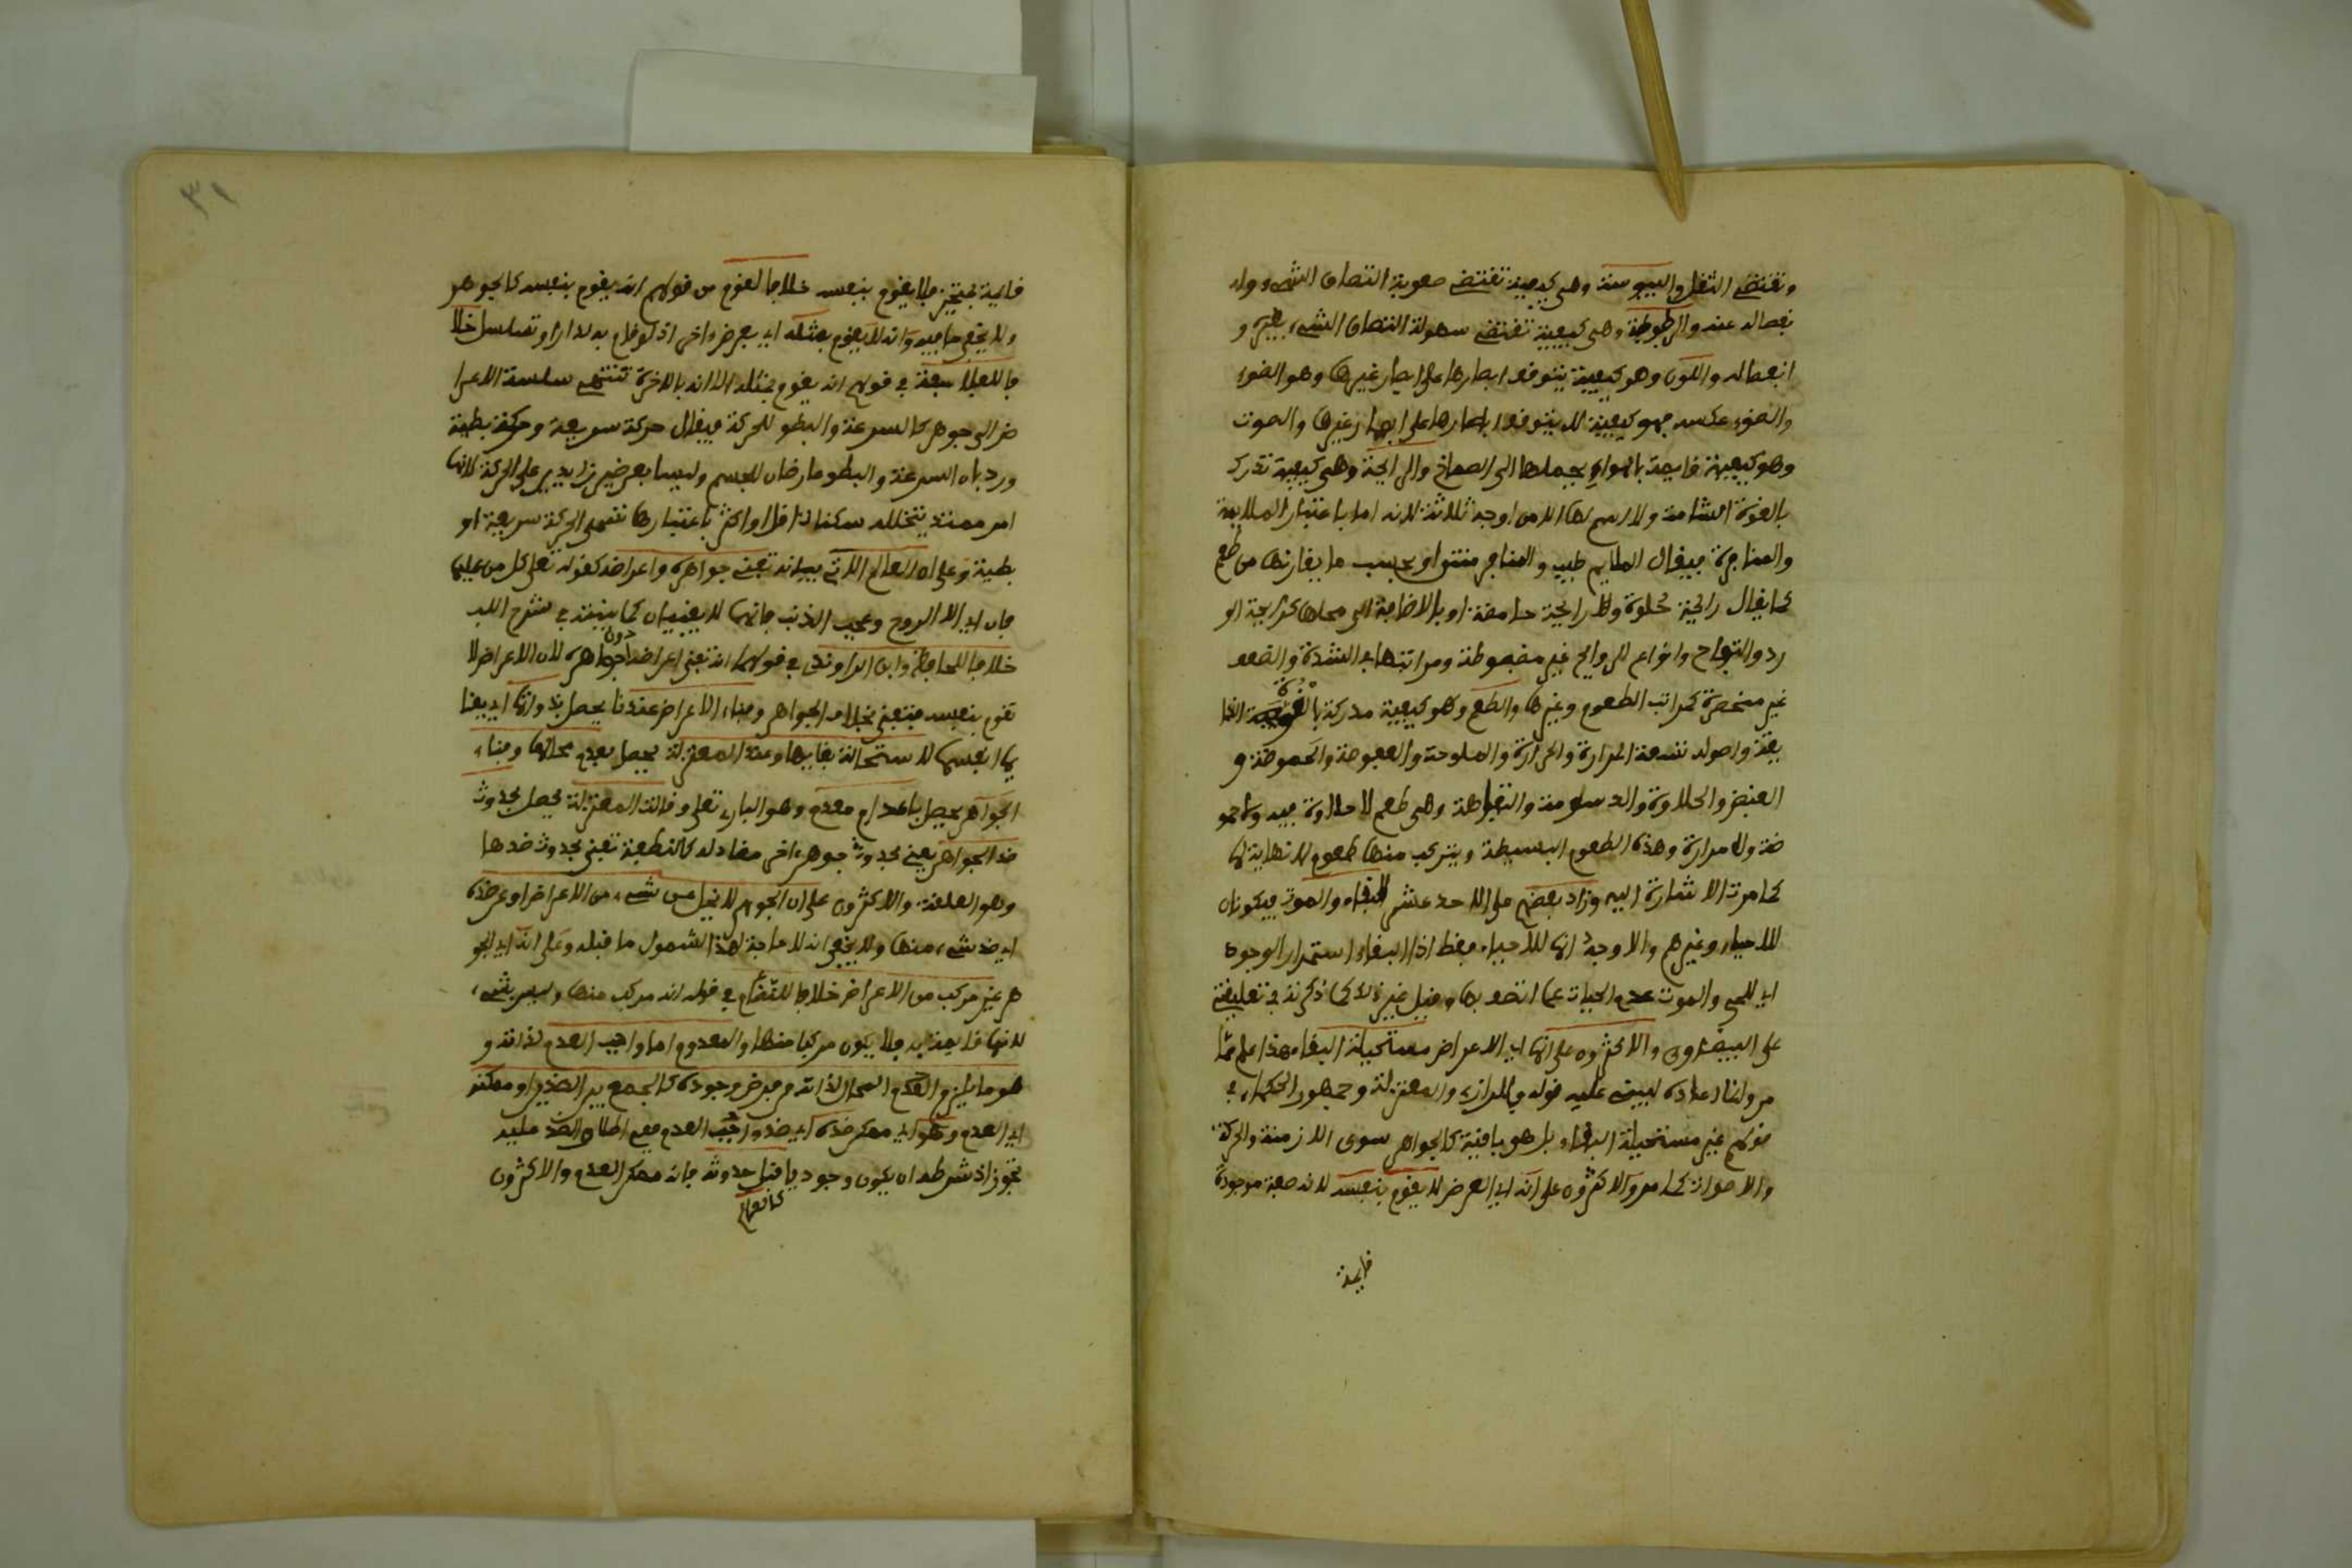 وتقتضي الثقل واليبوسة وهي كيفية تقتضي صعوبة التصاق الشيء وا
نفصاله عنه والرطوبة وهي كيفية تقتضي سهولة التصاق الشيء بغيره و
انفصاله واللون وهو كيفية يتوقف ابصارها على ابصار غيرها وهو الضوء
والضوء عكسه فهو كيفية لا يتوقف ابصارها على ابصار غيرها والصوت
وهو كيفية قايمة بالهواء يحملها الى الصماخ والرايحة وهي كيفية تدرك
بالقوة الشامة ولا اسم لها الا من اوجه ثلاثة لانه اما باعتبار الملايمة
والمنافرة فيقال الملايم طيب والمنافر منتن او بحسب ما يقارنها من طعم
كما يقال رائحة حلوة او رايحة حامضة او بالاضافة الى محلها كرايحة الو
رد والتفاح وانواع الروايح غير مضبوطة ومراتبها في الشدة والضعف
غير منحصرة كمراتب الطعوم وغيرها والطعم وهو كيفية مدركة بالقوة الذا
يقة واصوله تسعة المرارة والحرارة والملوحة والعفوصة والحموضة و
القبض والحلاوة والدسومة والتفاهة وهي طعم لا حلاوة فيه ولا حمو
ضة ولا مرارة وهذه الطعوم البسيطة ويتركب منها طعوم لا نهاية لها
كما مرت الاشارة اليه وزاد بعضهم على الاحد عشر البقاء والموت فيكونان
للاحياء وغيرهم والاوجه انها للاحياء فقط اذ البقاء استمرار الوجود
اي للحي والموت عدم الحيات عما اتصف بها وقيل غير ذلك كما ذكرته في تعليقتي
على البيضاوي والاكثرون على انها اي الاعراض مستحيلة البقاء هذا علم مما
مر وانما اعاده ليبني عليه قوله وللرازي والمعتزلة وجمهور الحكماء في
قولهم غير مستحيلة البقاء بل هو باقية كالجواهر سوى الازمنة والحركة
والاصوات كما مر والاكثرون على انه اي العرض لا يقوم بنفسه لانه صفة موجودة
قايمة
٣١
قايمة بمتحيز فلا يقوم بنفسه خلافا لقوم من قولهم انه يقوم بنفسه كالجوهر
ولا يخفى ما فيه وانه لا يقوم بمثله اي بعرض اخر اذ لو قام به لدار او تسلسل خلا
فا للفلاسفة في قولهم انه يقوم بمثله الا انه بالاخرة تنتهي سلسلة الاعرا
ض الى جوهر كالسرعة والبطو للحركة فيقال حركة سريعة وحركة بطية
ورد بان السرعة والبطو عارضان للجسم وليسا بعرضين زايدين على الحركة لانها
امر ممتد يتخلله سكنات اقل او اكثر باعتبارها تسمى الحركة سريعة او
بطية وعلى ان العالم الاتي بيانه تفنى جواهره واعراضه كقوله تعالى كل من عليها
فان اي الا الروح وعجب الذنب فانهما لا يفنيان كما بينته في شرح اللب
خلافا للجاحظ وابن الراوندي في قولهما انه تفنى اعراضه دون جواهره لان الاعراض لا
تقوم بنفسه فتفنى بخلاف الجواهر وفناء الاعراض عندنا يحصل بذواتها اي بفنا
يها انفسها لاستحالة بقايها وعند المعتزلة يحصل بعدم محالها وفناء
الجواهر يحصل باعدام معدم وهو الباري تعالى وقالت المعتزلة يحصل بحدوث
ضد الجواهر يعني بحدوث جوهر اخر مضاد له كالنطفة تفنى بحدوث ضدها
وهو العلقة والاكثرون على ان الجوهر لا يخلو عن شيء من الاعراض او عن ضده
اي ضد شيء منها ولا يخفى انه لا حاجة لهذا الشمول ما قبله وعلى انه اي الجو
هر غير مركب من الاعراض خلافا للنظام في قوله انه مركب منها وليس بشيء
لانها قايمة به فلا يكون مركبا منها والمعدوم اما واجب العدم لذاته و
هو ما يلزم المحال لذاته من فرض وجوده كالجمع بين الضدين او ممكنه
اي العدم وهو اي ممكن ضده اي ضد واجب العدم ففي اطلاق الضد عليه
تجوز اذ شرطه ان يكون وجوديا قبل حدوثه فانه ممكن العدم والاكثرون